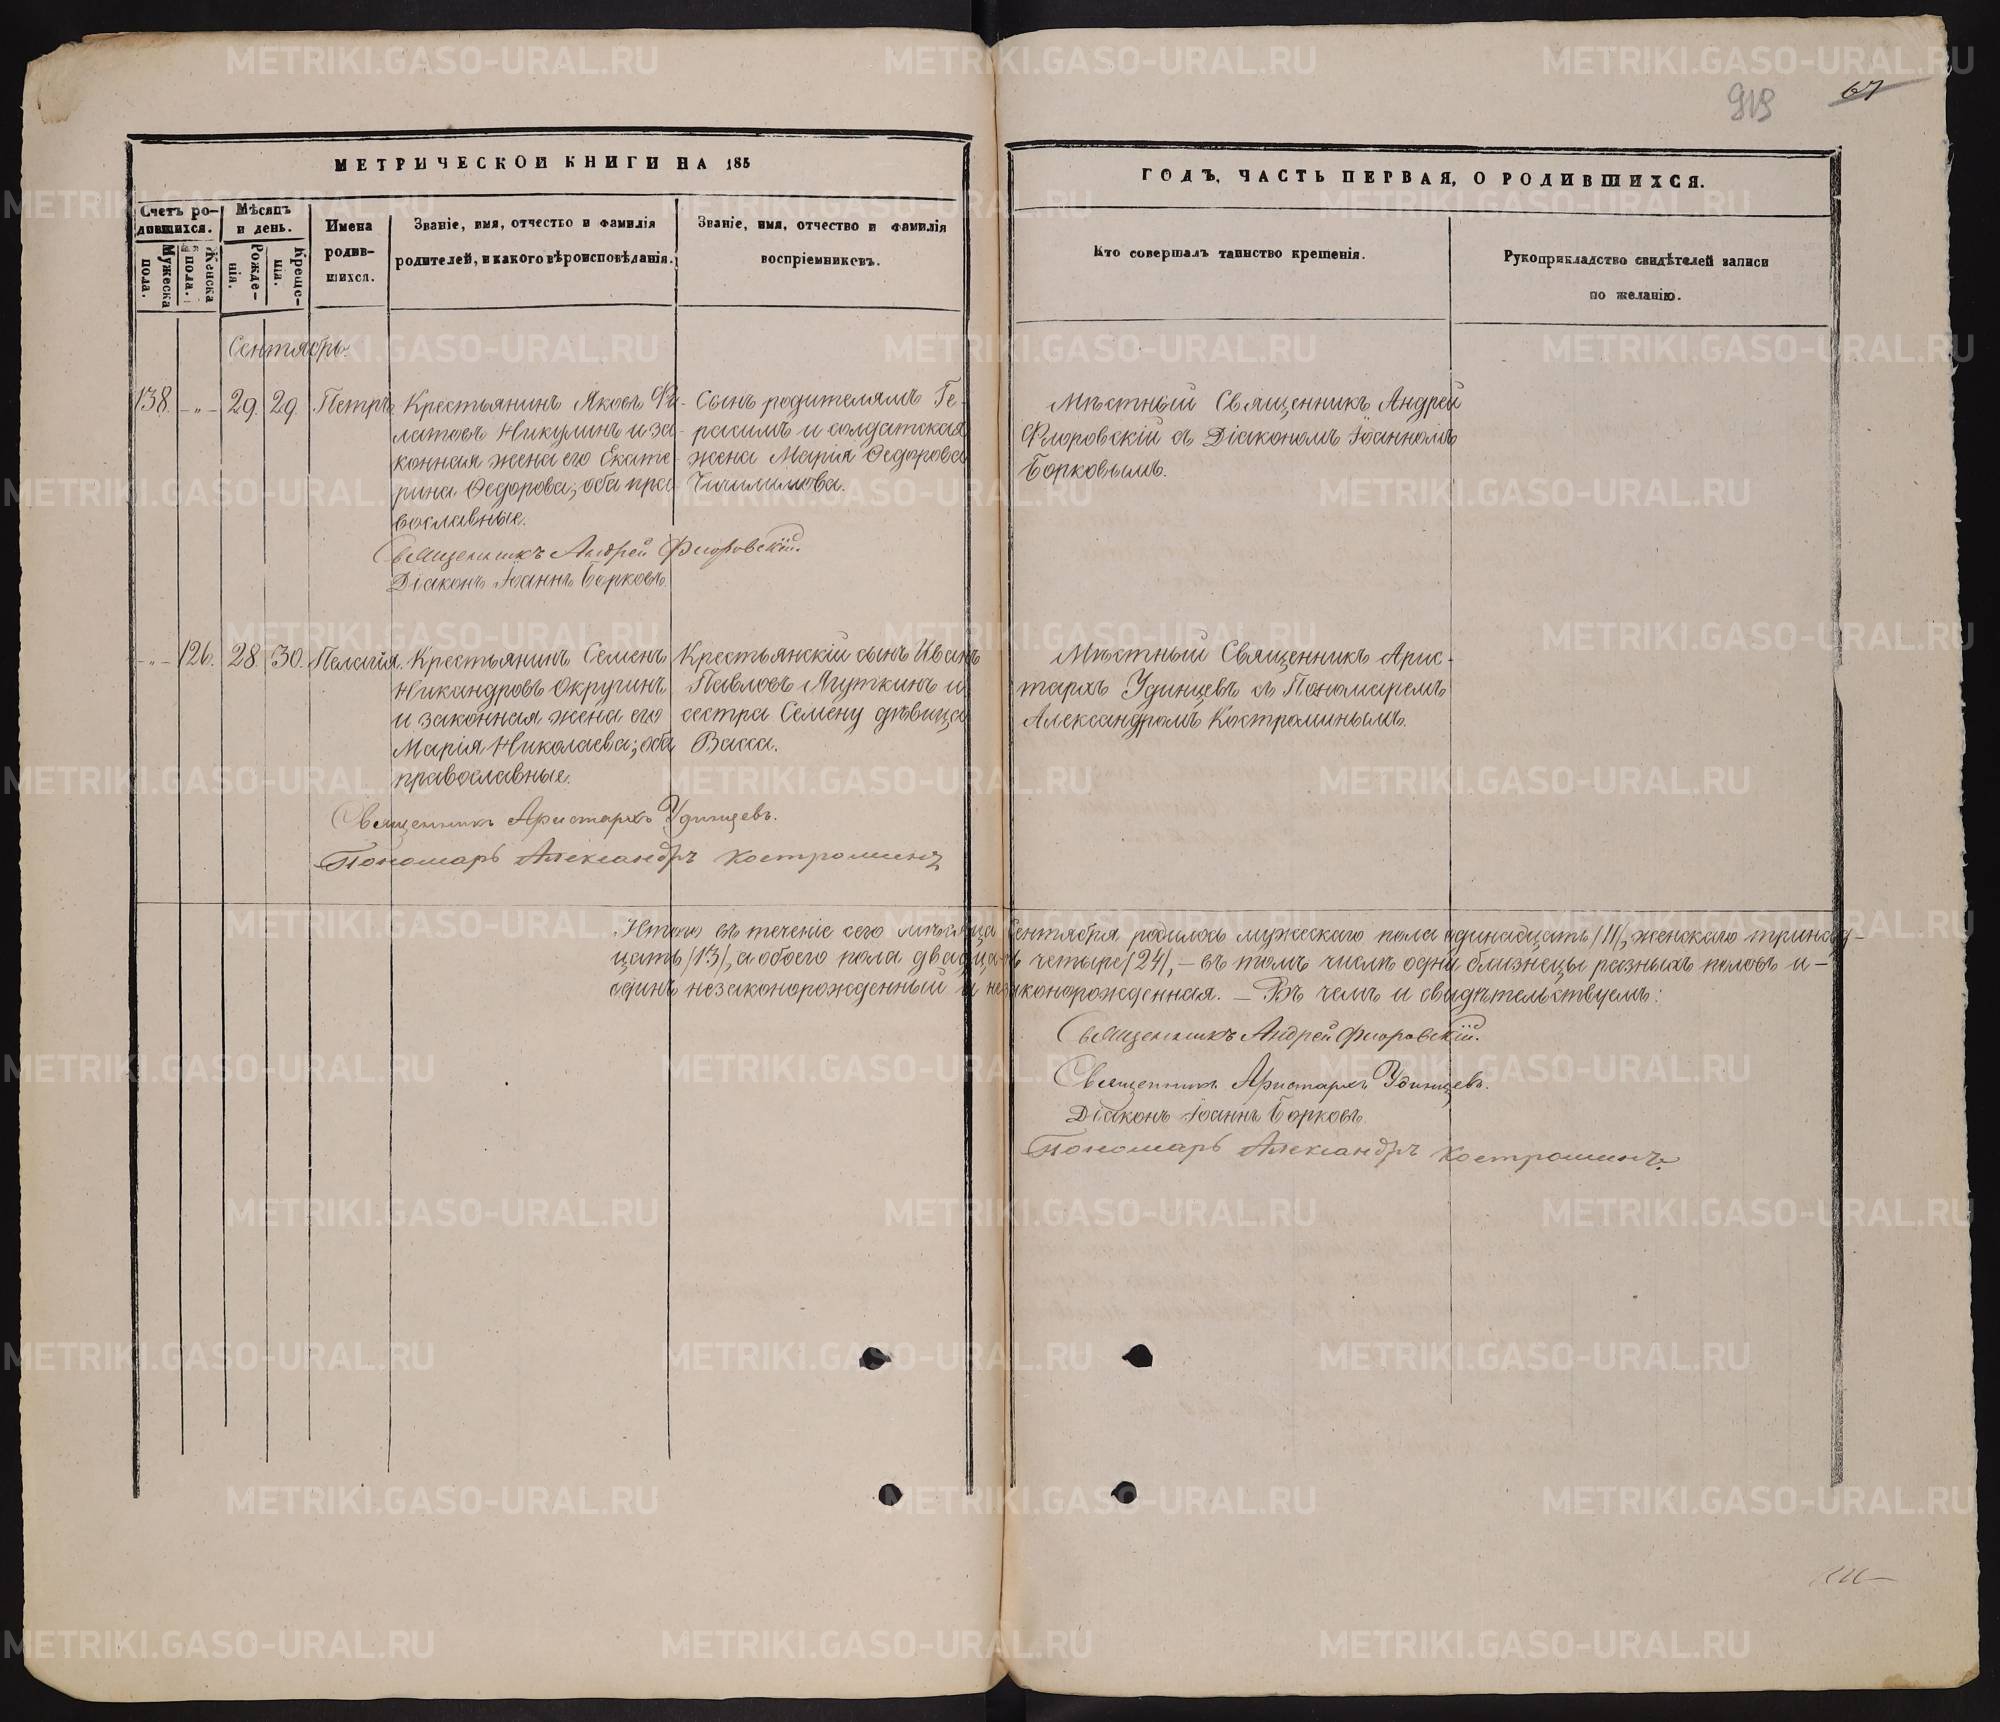 919 67
МЕТРИЧЕСКОЙ КНИГИ НА 185
ГОДЪ, ЧАСТЬ ПЕРВАЯ, О РОДИВШИХСЯ.
Счетъ ро-
дившихся.
Мужеска
пола.
Женска
пола.
Мѣсяцъ
и день.
Рожде-
нія.
Креще-
нія.
Имена
родив-
шихся.
Званіе, имя, отчество и фамилія
родителей, и какого вѣроисповѣданія.
Званіе, имя, отчество и фамилія
воспріемниковъ.
Кто совершалъ таинство крещенія.
Рукоприкладство свидѣтелей записи
по желанію.
Сентябрь.
138. -„- 29. 29. Петръ.
Крестьянинъ Яковъ Фи-
латовъ Никулинъ и за-
конная жена его Екате-
рина Ѳедорова; оба пра-
вославные.
Сынъ родителямъ Ге-
расимъ и солдатская
жена Марія Ѳедорова
Чичилимова.
Мѣстный Священникъ Андрей
Флоровскій съ Діакономъ Іоанномъ
Борковымъ.
Священникъ Андрей Флоровскій.
Діаконъ Іоаннъ Борковъ.
-„- 126. 28. 30. Пелагія.
Крестьянинъ Семенъ
Никандровъ Окружинъ
и законная жена его
Марія Николаева; оба
православные.
Крестьянскій сынъ Иванъ
Павловъ Ягуткинъ и
сестра Семену дѣвица
Васса.
Мѣстный Священникъ Арис-
тархъ Удинцевъ съ Пономаремъ
Александромъ Костроминымъ.
Священникъ Аристархъ Удинцевъ.
Пономарь Александръ Костроминъ
Итого въ теченіе сего мѣсяца Сентября родилось мужескаго пола одинадцать /11/, женскаго тринад-
цать /13/, а обоего пола двадцать четыре /24/, - въ томъ числѣ одни близнецы разныхъ половъ и -
одинъ незаконорожденный и незаконорожденная. - Въ чемъ и свидѣтельствуемъ:
Священникъ Андрей Флоровскій.
Священникъ Аристархъ Удинцевъ.
Діаконъ Іоаннъ Борковъ
Пономарь Александръ Костроминъ.
METRIKI.GASO-URAL.RU